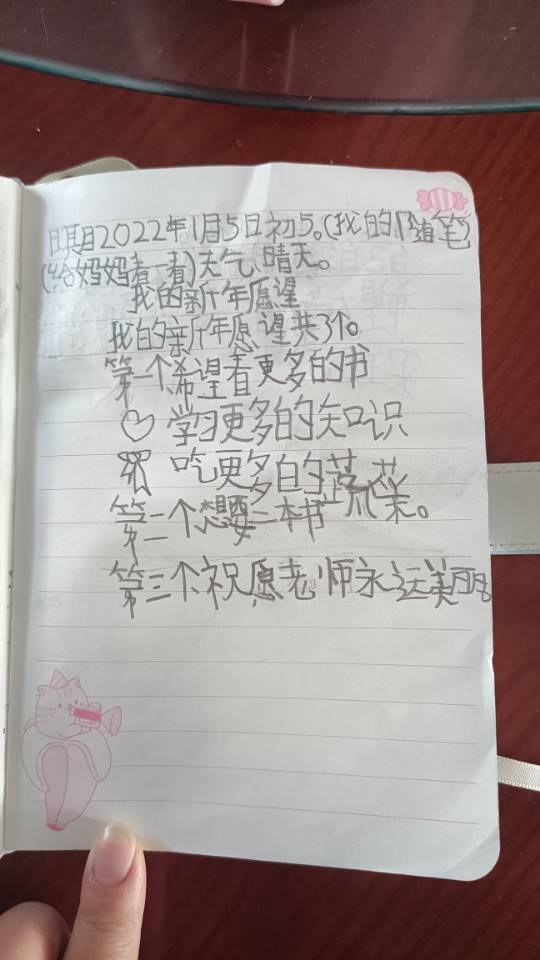 日期2022年1月5日初5。(我的随笔)
(给妈妈看一看)天气、晴天。
我的新年愿望
我的新年愿望共3个。
第一个希望看更多的书
学习更多的知识
吃更多的蔬菜
第二个想要二本书
第三个祝愿老师永远美丽